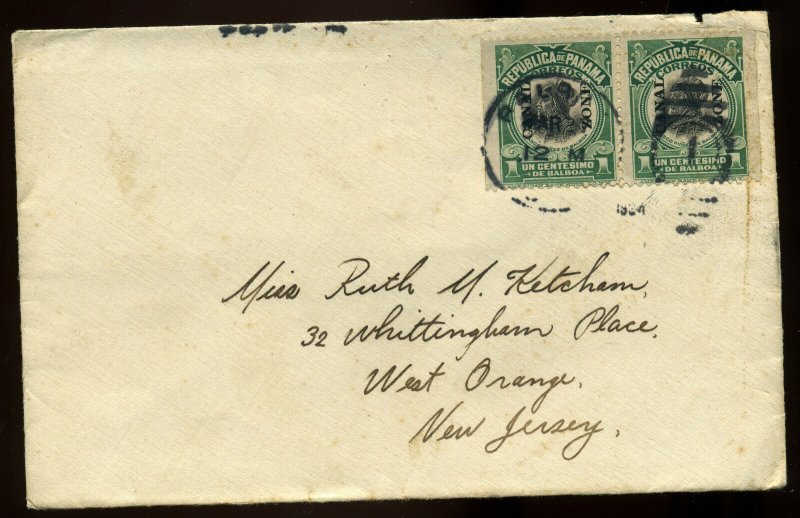 REPÚBLICA DE PANAMA
CORREOS
CANAL ZONE
1 UN CENTESIMO 1
DE BALBOA
REPÚBLICA DE PANAMA
CORREOS
CANAL ZONE
1 UN CENTESIMO 1
DE BALBOA
MAR
12 M
1924
1
Miss Ruth M. Ketcham,
32 Whittingham Place,
West Orange,
New Jersey,